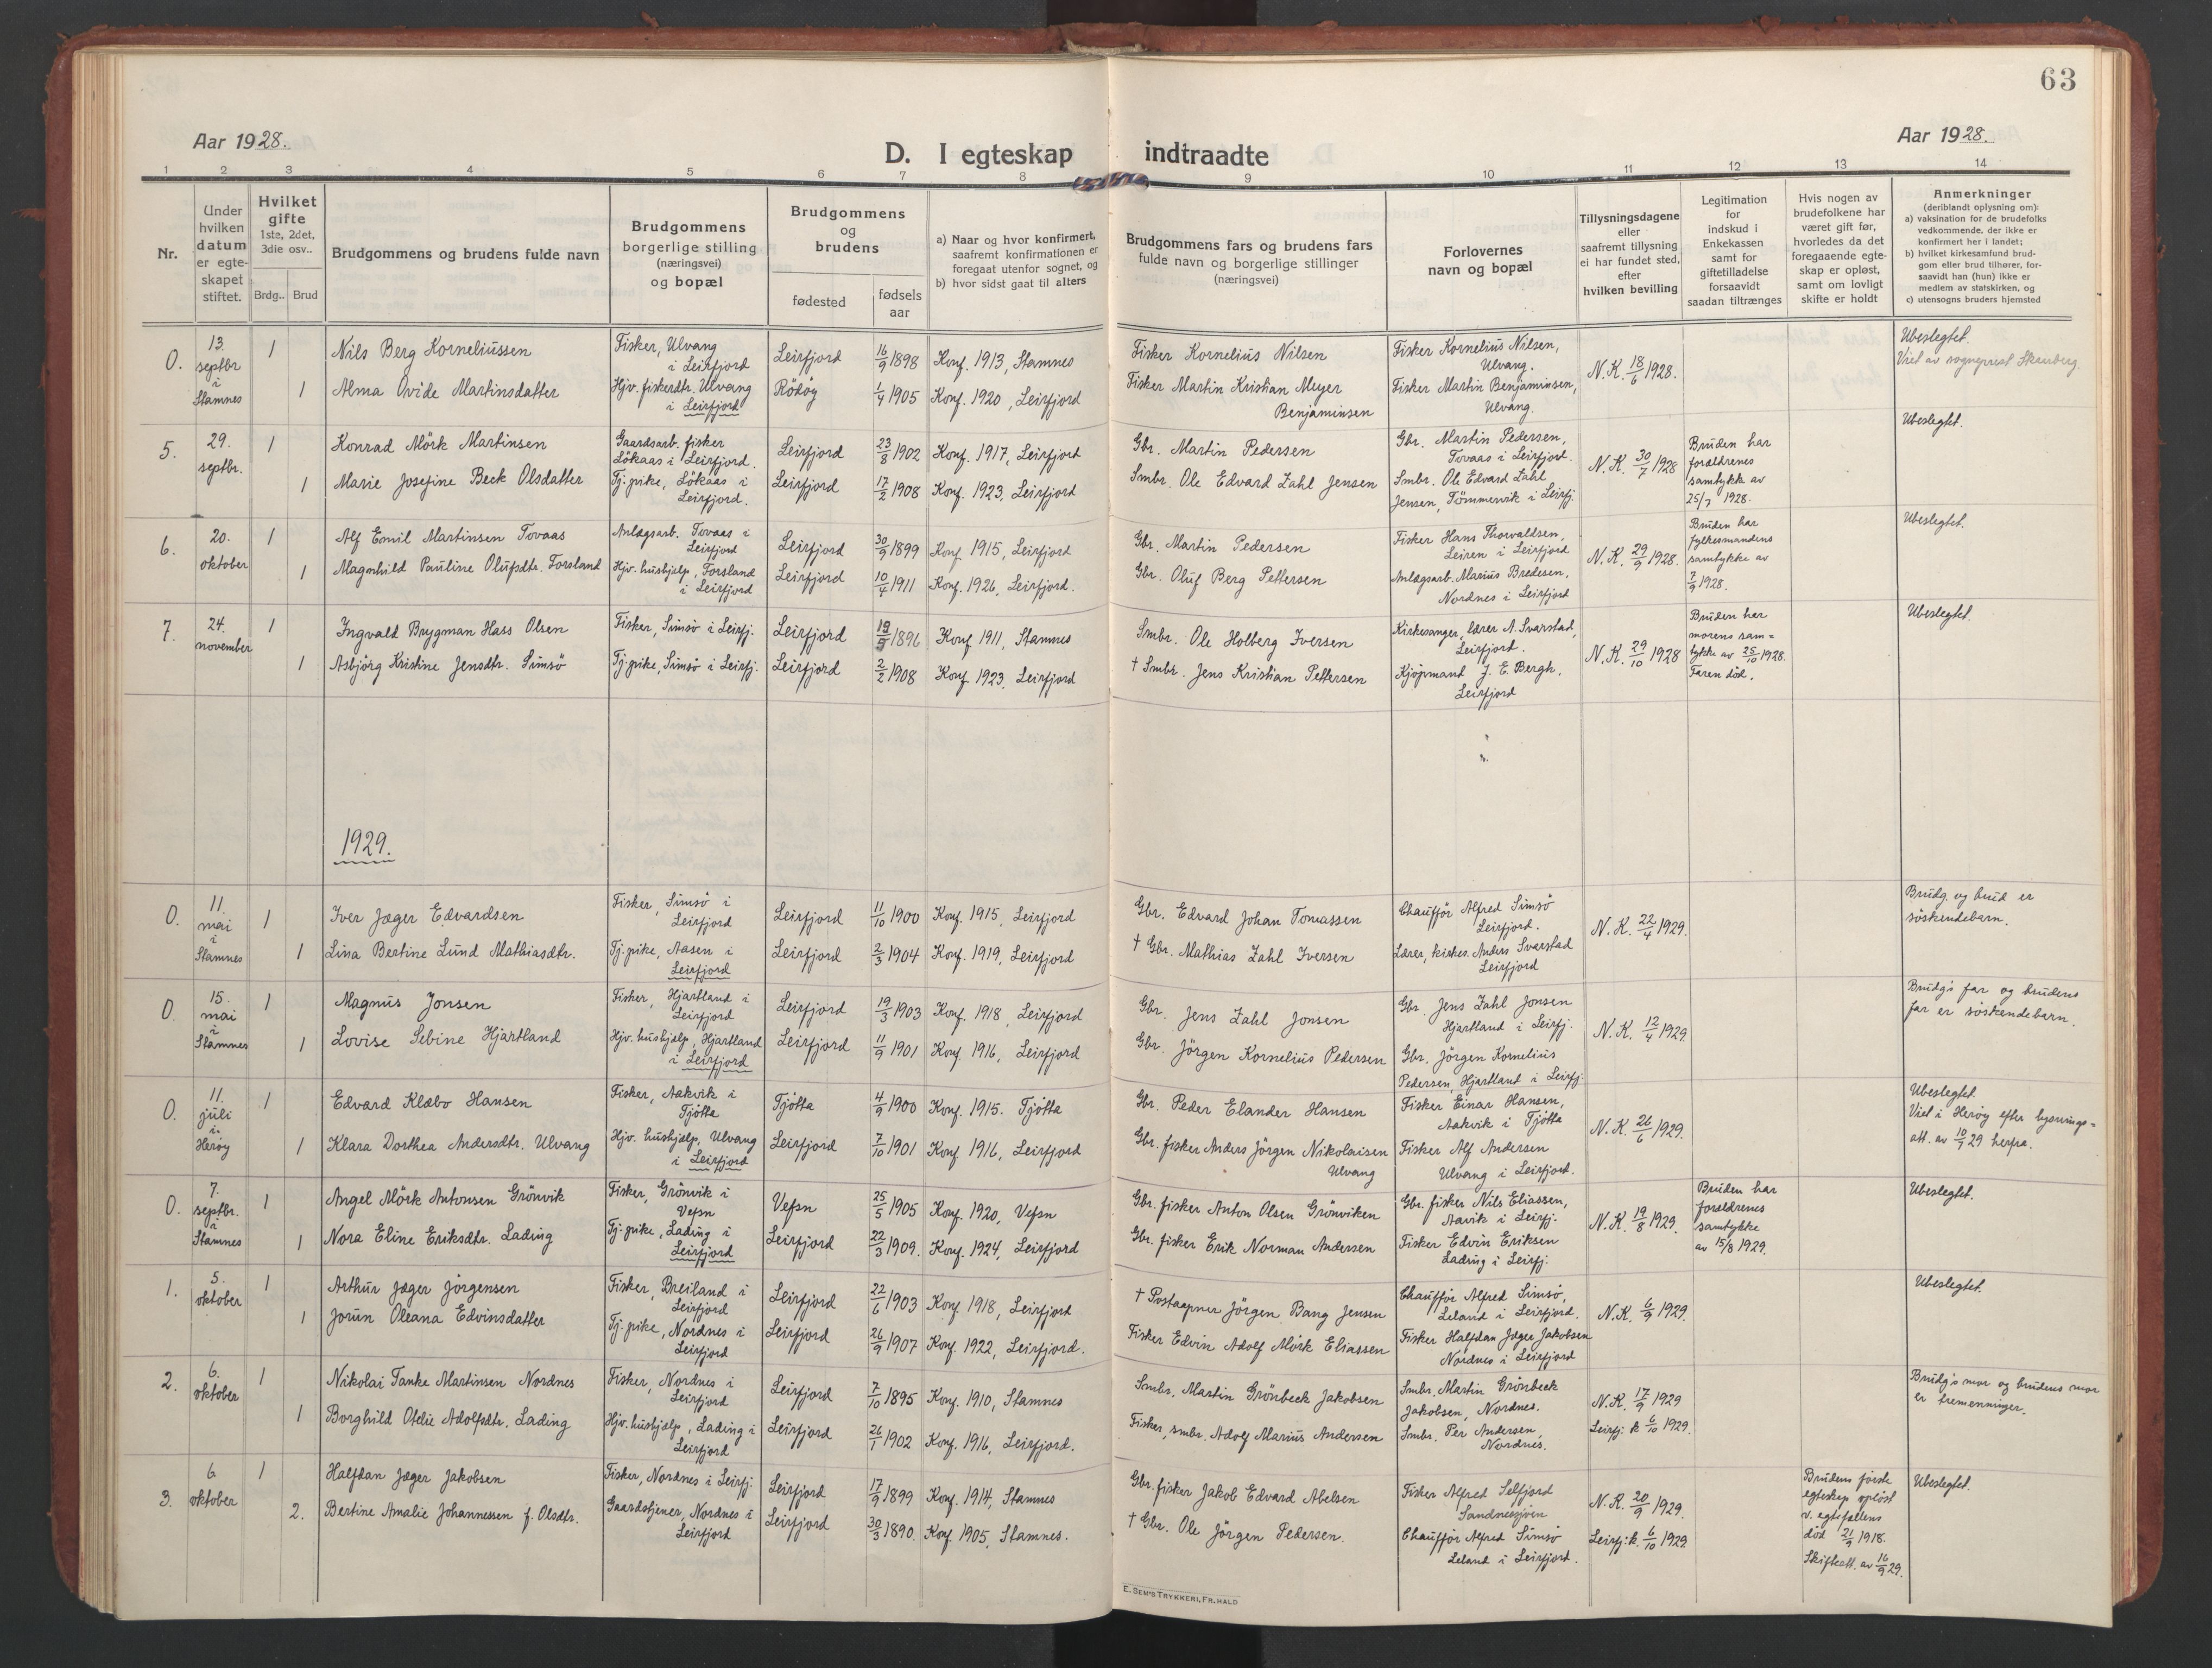 63
Aar 1928.
D. I egteskap indtraadte
Aar 1928.
1 2 3 4 5 6 7 8 9 10 11 12 13 14
Nr.
Under hvilken datum er egteskapet stiftet.
Hvilket gifte 1ste, 2det, 3die osv..
Brdg.. Brud
Brudgommens og brudens fulde navn
Brudgommens borgerlige stilling (næringsvei) og bopæl
Brudgommens og brudens
fødested
fødsels aar
a) Naar og hvor konfirmert, saafremt konfirmationen er foregaat utenfor sognet, og
b) hvor sidst gaat til alters
Brudgommens fars og brudens fars fulde navn og borgerlige stillinger (næringsvei)
Forlovernes navn og bopæl
Tillysningsdagene eller saafremt tillysning ei har fundet sted, efter hvilken bevilling
Legitimation for indskud i Enkekassen samt for giftetilladelse forsaavidt saadan tiltrænges
Hvis nogen av brudefolkene har været gift før, hvorledes da det foregaaende egteskap er opløst, samt om lovligt skifte er holdt
Anmerkninger
(deriblandt oplysning om):
a) vaksination for de brudefolks vedkommende, der ikke er konfirmert her i landet;
b) hvilket kirkesamfund brudgom eller brud tilhører, forsaavidt han (hun) ikke er medlem av statskirken, og
c) utensogns bruders hjemsted
0. 13. septbr i Stamnes
1 Nils Berg Korneliussen
Fisker, Ulvang i Leirfjord
Leirfjord 16/9 1898 Konf. 1913, Stamnes
Fisker Kornelius Nilsen
Fisker Kornelius Nilsen, Ulvang.
N.K. 18/6 1928.
Ubeslegtet.
Viet av sogneprest Skauberg.
1 Alma Ovide Martinsdatter
Hjv. fiskerdtr. Ulvang i Leirfjord
Rödöy 1/4 1905 Konf. 1920, Leirfjord
Fisker Martin Kristian Meyer Benjaminsen
Fisker Martin Benjaminsen, Ulvang.
5. 29. septbr.
1 Konrad Mörk Martinsen
Gaardsarb. fisker Lökaas i Leirfjord.
Leirfjord 23/8 1902 Konf. 1917, Leirfjord
Gbr. Martin Pedersen
Gbr. Martin Pedersen, Tovaas i Leirfjord.
N.K. 30/7 1928
Bruden har forældrenes samtykke av 25/7 1928.
Ubeslegtet.
1 Marie Josefine Beck Olsdatter
Tj. pike, Lökaas i Leirfjord.
Leirfjord 17/2 1908 Konf. 1923, Leirfjord
Smbr. Ole Edvard Zahl Jensen
Smbr. Ole Edvard Zahl Jensen, Tömmervik i Leirfj.
6. 20. oktober
1 Alf Emil Martinsen Tovaas
Anlægsarb. Tovaas i Leirfjord
Leirfjord 30/9 1899 Konf. 1915, Leirfjord
Gbr. Martin Pedersen
Fisker Hans Thorvaldsen, Leiren i Leirfjord
N.K. 29/9 1928.
Bruden har fylkesmandens samtykke av 7/9 1928.
Ubeslegtet.
1 Magnhild Pauline Olufsdtr. Forsland
Hjv. hushjælp, Forsland i Leirfjord
Leirfjord 10/4 1911 Konf. 1926, Leirfjord.
Gbr. Oluf Berg Pettersen
Anlægsarb. Marius Bredesen, Nordnes i Leirfjord
7. 24. november
1 Ingvald Brygman Hass Olsen
Fisker, Simsö i Leirfj.
Leirfjord 19/9 1896 Konf. 1911, Stamnes
Smbr. Ole Holberg Iversen
Kirkesanger, lærer A. Svarstad, Leirfjord.
N.K. 29/10 1928
Bruden har morens samtykke av 25/10 1928. Faren död.
Ubeslegtet.
1 Asbjörg Kristine Jensdtr. Simsö
Tj. pike, Simsö i Leirfj.
Leirfjord 2/2 1908 Konf. 1923, Leirfjord
† Smbr. Jens Kristian Pettersen
Kjöpmand J. E. Bergh, Leirfjord
1929.
0. 11. mai i Stamnes
1 Iver Jæger Edvardsen
Fisker, Simsö i Leirfjord
Leirfjord 11/10 1900 Konf. 1915, Leirfjord
Gbr. Edvard Johan Tomassen
Chaufför Alfred Simsö Leirfjord.
N.K. 22/4 1929.
Brudg. og brud er söskendebarn.
1 Lina Bertine Lund Mathiasdtr.
Tj. pike, Aasen i Leirfjord
Leirfjord 2/3 1904 Konf. 1919, Leirfjord
† Gbr. Mathias Zahl Iversen
Lærer, kirkes. Anders Svarstad Leirfjord
0. 15. mai i Stamnes
1 Magnus Jonsen
Fisker, Hjartland i Leirfjord
Leirfjord 19/3 1903 Konf. 1918, Leirfjord
Gbr. Jens Zahl Jonsen
Gbr. Jens Zahl Jonsen Hjartland i Leirfj.
N.K. 12/4 1929.
Brudg's far og brudens far er söskendebarn.
1 Lovise Sebine Hjartland
Hjv. hushjælp, Hjartland i Leirfjord
Leirfjord 11/9 1901 Konf. 1916, Leirfjord
Gbr. Jörgen Kornelius Pedersen
Gbr. Jörgen Kornelius Pedersen, Hjartland i Leirfj.
0. 11. juli i Heröy
1 Edvard Klæbo Hansen
Fisker, Aakvik i Tjötta
Tjötta 4/9 1900 Konf. 1915. Tjötta
Gbr. Peder Elander Hansen
Fisker Einar Hansen, Aakvik i Tjötta
N.K. 26/6 1929.
Ubeslegtet.
Viet i Heröy efter lysningsatt. av 10/7 29 herfra.
1 Klara Dorthea Andersdtr. Ulvang
Hjv. hushjælp, Ulvang i Leirfjord
Leirfjord 7/10 1901 Konf. 1916, Leirfjord
Gbr. fisker Anders Jörgen Nikolaisen Ulvang
Fisker Alf Andersen Ulvang i Leirfjord.
0. 7. septbr. i Stamnes
1 Angel Mörk Antonsen Grönvik
Fisker, Grönvik i Vefsn
Vefsn 25/5 1905 Konf. 1920, Vefsn
Gbr. fisker Anton Olsen Grönviken
Gbr. fisker Nils Eliassen, Aavik i Leirfj.
N.K. 19/8 1929.
Bruden har forældrenes samtykke av 15/8 1929.
Ubeslegtet.
1 Nora Eline Eriksdtr. Lading
Tj. pike, Lading i Leirfjord
Leirfjord 22/3 1909. Konf. 1924, Leirfjord
Gbr. fisker Erik Norman Andersen
Fisker Edvin Eriksen Lading i Leirfj.
1. 5. oktober
1 Arthur Jæger Jörgensen
Fisker, Breiland i Leirfjord
Leirfjord 22/6 1903 Konf. 1918, Leirfjord
† Postaapner Jörgen Bang Jensen
Chaufför Alfred Simsö, Leland i Leirfjord.
N.K. 6/9 1929.
Ubeslegtet.
1 Jorun Oleana Edvinsdatter
Tj. pike, Nordnes i Leirfjord
Leirfjord 26/9 1907 Konf. 1922, Leirfjord.
Fisker Edvin Adolf Mörk Eliassen
Fisker Halfdan Jæger Jakobsen Nordnes i Leirfjord
2. 6. oktober
1 Nikolai Tanke Martinsen Nordnes
Fisker, Nordnes i Leirfjord
Leirfjord 7/10 1895 Konf. 1910, Stamnes
Smbr. Martin Grönbeck Jakobsen
Smbr. Martin Grönbeck Jakobsen, Nordnes.
N.K. 17/9 1929
Leirfj. k 6/10 1929.
Brudg's mor og brudens mor er tremenninger.
1 Borghild Otelie Adolfsdtr. Lading
Hjv. hushjælp, Lading i Leirfjord
Leirfjord 26/1 1902 Konf. 1916, Leirfjord.
Fisker, smbr. Adolf Marius Andersen
Smbr. Per Andersen, Nordnes.
3. 6 oktober
1 Halfdan Jæger Jakobsen
Fisker, Nordnes i Leirfj.
Leirfjord 17/9 1899 Konf. 1914, Stamnes
Gbr. fisker Jakob Edvard Abelsen
Fisker Alfred Selfjord Sandnessjöen
N.K. 20/9 1929.
Leirfj: k. 6/10 1929.
Brudens förste egteskap oplöst v. egtefællens död 21/9 1918.
Skifteatt. av 16/9 29.
Ubeslegtet.
2. Bertine Amalie Johannessen f. Olsdtr.
Gaardstjener, Nordnes i Leirfjord
Leirfjord 30/3 1890. Konf. 1905, Stamnes.
† Gbr. Ole Jörgen Pedersen.
Chaufför Alfred Simsö Leland i Leirfjord.
E. SEM'S TRYKKERI, FR.HALD